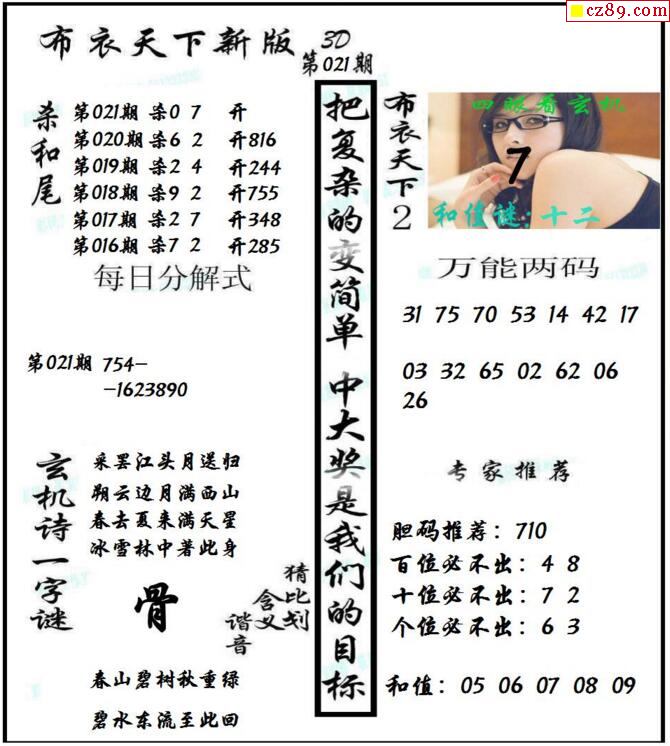 cz89.com
布衣天下新版 3D
第021期
杀和尾
第021期 杀0 7 开
第020期 杀6 2 开816
第019期 杀2 4 开244
第018期 杀9 2 开755
第017期 杀2 7 开348
第016期 杀7 2 开285
每日分解式
第021期 754-
-1623890
玄机诗一字谜
采罢江头月送归
朔云边月满西山
春去夏来满天星
冰雪林中著此身
骨
猜比划
含义
谐音
春山碧树秋重绿
碧水东流至此回
把复杂的变简单 中大奖是我们的目标
布衣天下2
四眼看玄机
7
和值谜:十二
万能两码
31 75 70 53 14 42 17
03 32 65 02 62 06
26
专家推荐
胆码推荐：710
百位必不出：4 8
十位必不出：7 2
个位必不出：6 3
和值：05 06 07 08 09